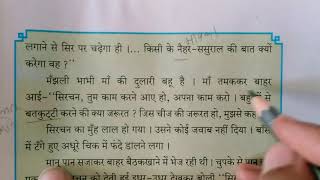 लगाने से सिर पर चढ़ेगा ही।... किसी के नैहर-ससुराल की बात क्यों
करेगा वह ?''
मँझली भाभी माँ की दुलारी बहू है । माँ तमककर बाहर
आई–''सिरचन, तुम काम करने आए हो, अपना काम करो । बहुओं से
बतकुट्टी करने की क्या जरूरत ? जिस चीज की जरूरत हो, मुझसे कहो
सिरचन का मुँह लाल हो गया । उसने कोई जवाब नहीं दिया । बाँस
में टँगे हुए अधूरे चिक में फंदे डालने लगा ।
मानू पान सजाकर बाहर बैठकखाने में भेज रही थी । चुपके से पान
सिरचन को देती हुई इधर-उधर देखकर बोली